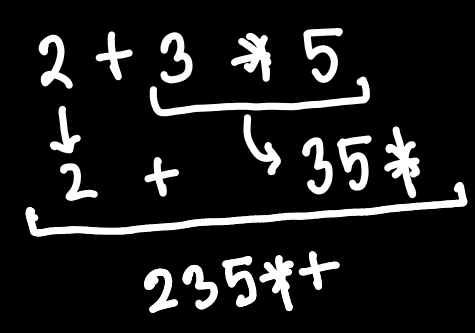 2 + 3 * 5
2 + 35*
235*+